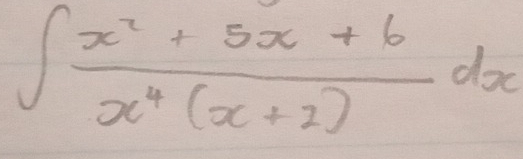 ∫ (x² + 5x + 6) / (x⁴ (x + 2)) dx